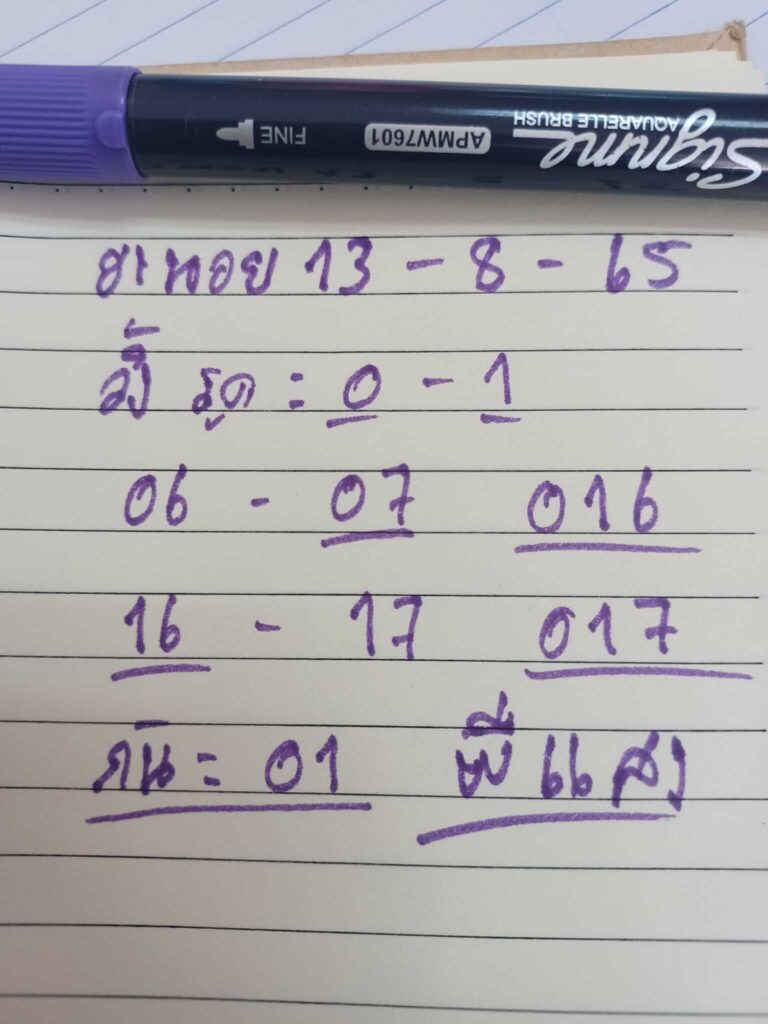 Signme
AQUARELLE BRUSH
APMW7601
FINE
ฮานอย 13 - 8 - 65
วิ่ง รูด : 0 - 1
06 - 07 016
16 - 17 017
กัน = 01 พี่แสง